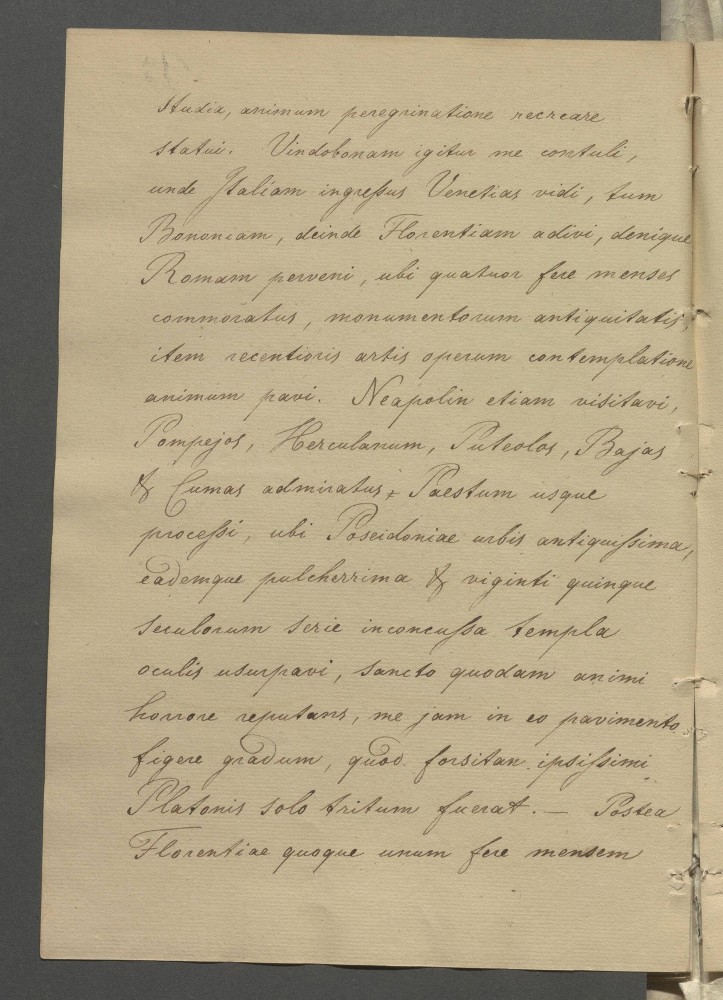 studia, animum peregrinatione recreare
statui. Vindobonam igitur me contuli,
unde Italiam ingressus Venetias vidi, tum
Bononiam, deinde Florentiam adivi, denique
Romam perveni, ubi quatuor fere menses
commoratus, monumentorum antiquitatis,
item recentioris artis operum contemplatione
animum pavi. Neapolin etiam visitavi,
Pompejos, Herculanum, Puteolos, Bajas
& Cumas admiratus, Paestum usque
processi, ubi Poseidoniae urbis antiquissima,
eademque pulcherrima & viginti quinque
seculorum serie inconcussa templa
oculis usurpavi, sancto quodam animi
horrore reputans, me jam in eo pavimento
figere gradum, quod forsitan ipsissimi
Platonis solo tritum fuerat. — Postea
Florentiae quoque unum fere mensem